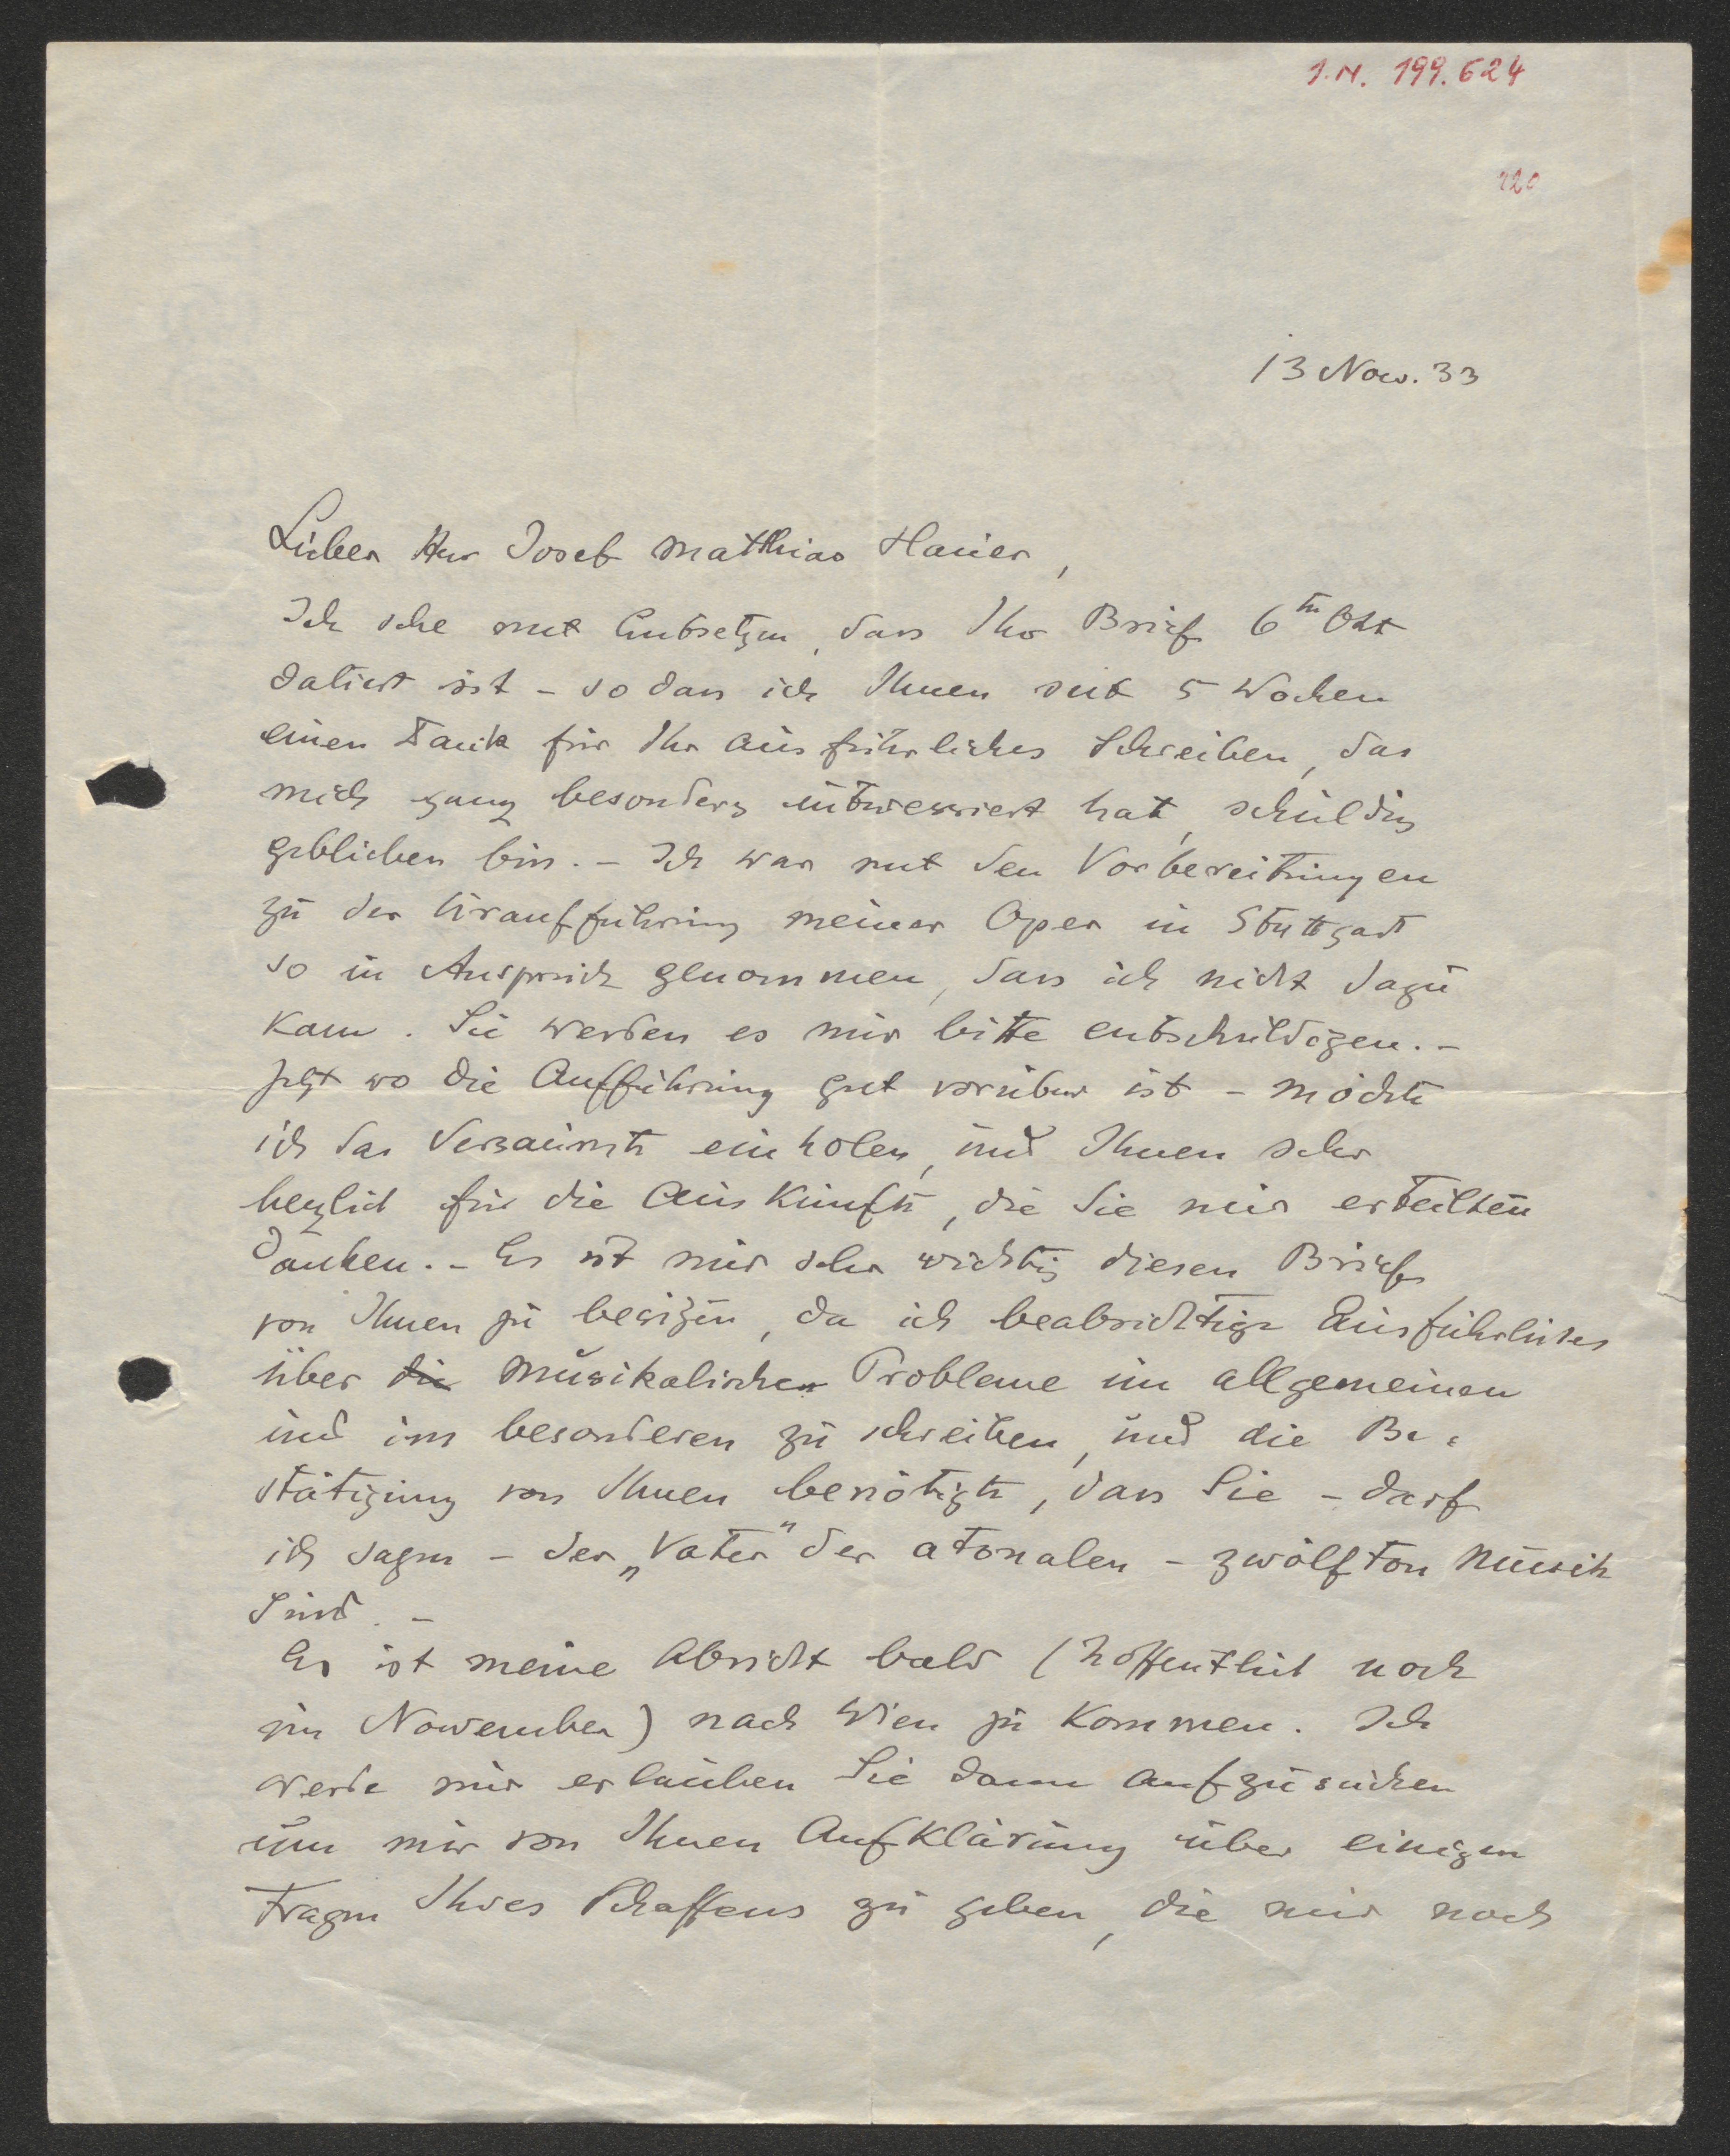 I.N. 199.624
120
13 Now. 33
Lieber Herr Josef Matthias Hauer,
Ich sehe mit Entsetzen, dass Ihr Brief 6ten Okt
datiert ist – so dass ich Ihnen seit 5 Wochen
einen Dank für Ihr ausführliches Schreiben, das
mich ganz besonders interessiert hat, schuldig
geblieben bin. – Ich war mit den Vorbereitungen
zu der Uraufführung meiner Oper in Stuttgart
so in Anspruch genommen, dass ich nicht dazu
kam. Sie werden es mir bitte entschuldigen. –
Jetzt wo die Aufführung gut vorüber ist – möchte
ich das Versäumte einholen, und Ihnen sehr
herzlich für die Auskünfte, die Sie mir erteilten
danken. – Es ist mir sehr wichtig diesen Brief
von Ihnen zu besitzen, da ich beabsichtige Ausführliches
über die musikalischen Probleme im allgemeinen
und im besonderen zu schreiben, und die Be-
stätigung von Ihnen benötigte, dass Sie – darf
ich sagen – der „Vater" der atonalen – zwölfton Musik
sind. –
Es ist meine Absicht bald (hoffentlich noch
im Nowember) nach Wien zu kommen. Ich
werde mir erlauben Sie dann aufzusuchen
um mir von Ihnen Aufklärung über einigen
Fragen Ihres Schaffens zu geben, die mir noch